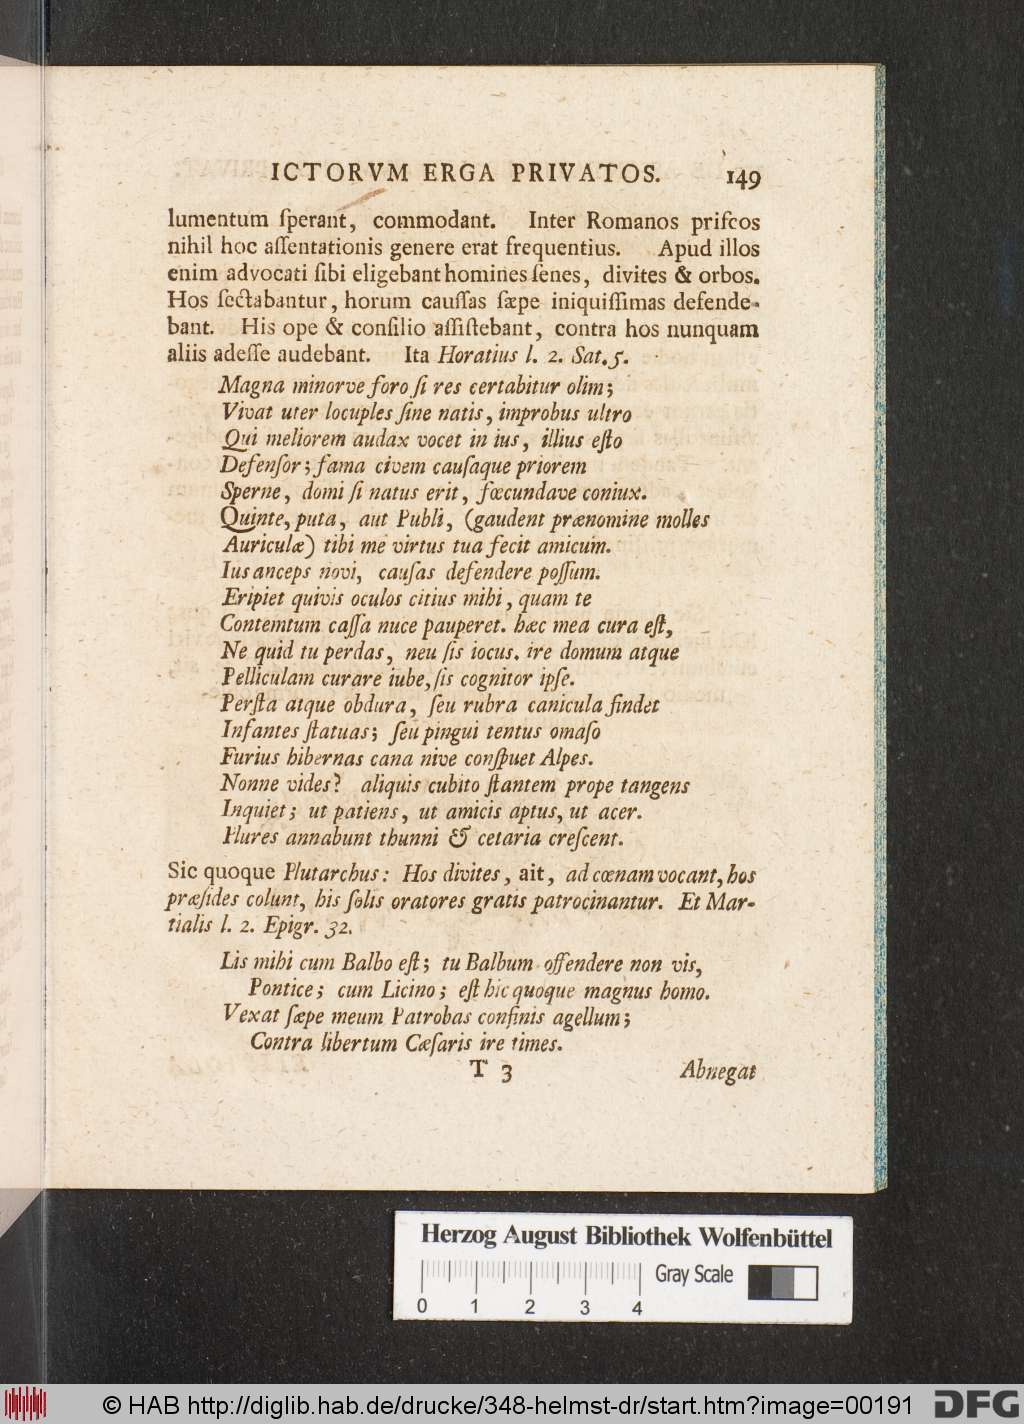 ICTORVM ERGA PRIVATOS. 149
lumentum ſperant, commodant. Inter Romanos priſcos
nihil hoc aſſentationis genere erat frequentius. Apud illos
enim advocati ſibi eligebant homines ſenes, divites & orbos.
Hos ſectabantur, horum cauſſas ſæpe iniquiſſimas defende-
bant. His ope & conſilio aſſiſtebant, contra hos nunquam
aliis adeſſe audebant. Ita Horatius l. 2. Sat. 5.
Magna minorve foro ſi res certabitur olim;
Vivat uter locuples ſine natis, improbus ultro
Qui meliorem audax vocet in ius, illius eſto
Defenſor; fama civem cauſaque priorem
Sperne, domi ſi natus erit, fœcundave coniux.
Quinte, puta, aut Publi, (gaudent prænomine molles
Auriculæ) tibi me virtus tua fecit amicum.
Ius anceps novi, cauſas defendere poſſum.
Eripiet quivis oculos citius mihi, quam te
Contemtum caſſa nuce pauperet. hæc mea cura eſt,
Ne quid tu perdas, neu ſis iocus. ire domum atque
Pelliculam curare iube, ſis cognitor ipſe.
Perſta atque obdura, ſeu rubra canicula findet
Infantes ſtatuas; ſeu pingui tentus omaſo
Furius hibernas cana nive conſpuet Alpes.
Nonne vides? aliquis cubito ſtantem prope tangens
Inquiet; ut patiens, ut amicis aptus, ut acer.
Plures annabunt thunni & cetaria creſcent.
Sic quoque Plutarchus: Hos divites, ait, ad cœnam vocant, hos
præſides colunt, his ſolis oratores gratis patrocinantur. Et Mar-
tialis l. 2. Epigr. 32.
Lis mihi cum Balbo eſt; tu Balbum offendere non vis,
Pontice; cum Licino; eſt hic quoque magnus homo.
Vexat ſæpe meum Patrobas confinis agellum;
Contra libertum Cæſaris ire times.
T 3 Abnegat
Herzog August Bibliothek Wolfenbüttel
Gray Scale
0 1 2 3 4
© HAB http://diglib.hab.de/drucke/348-helmst-dr/start.htm?image=00191
DFG